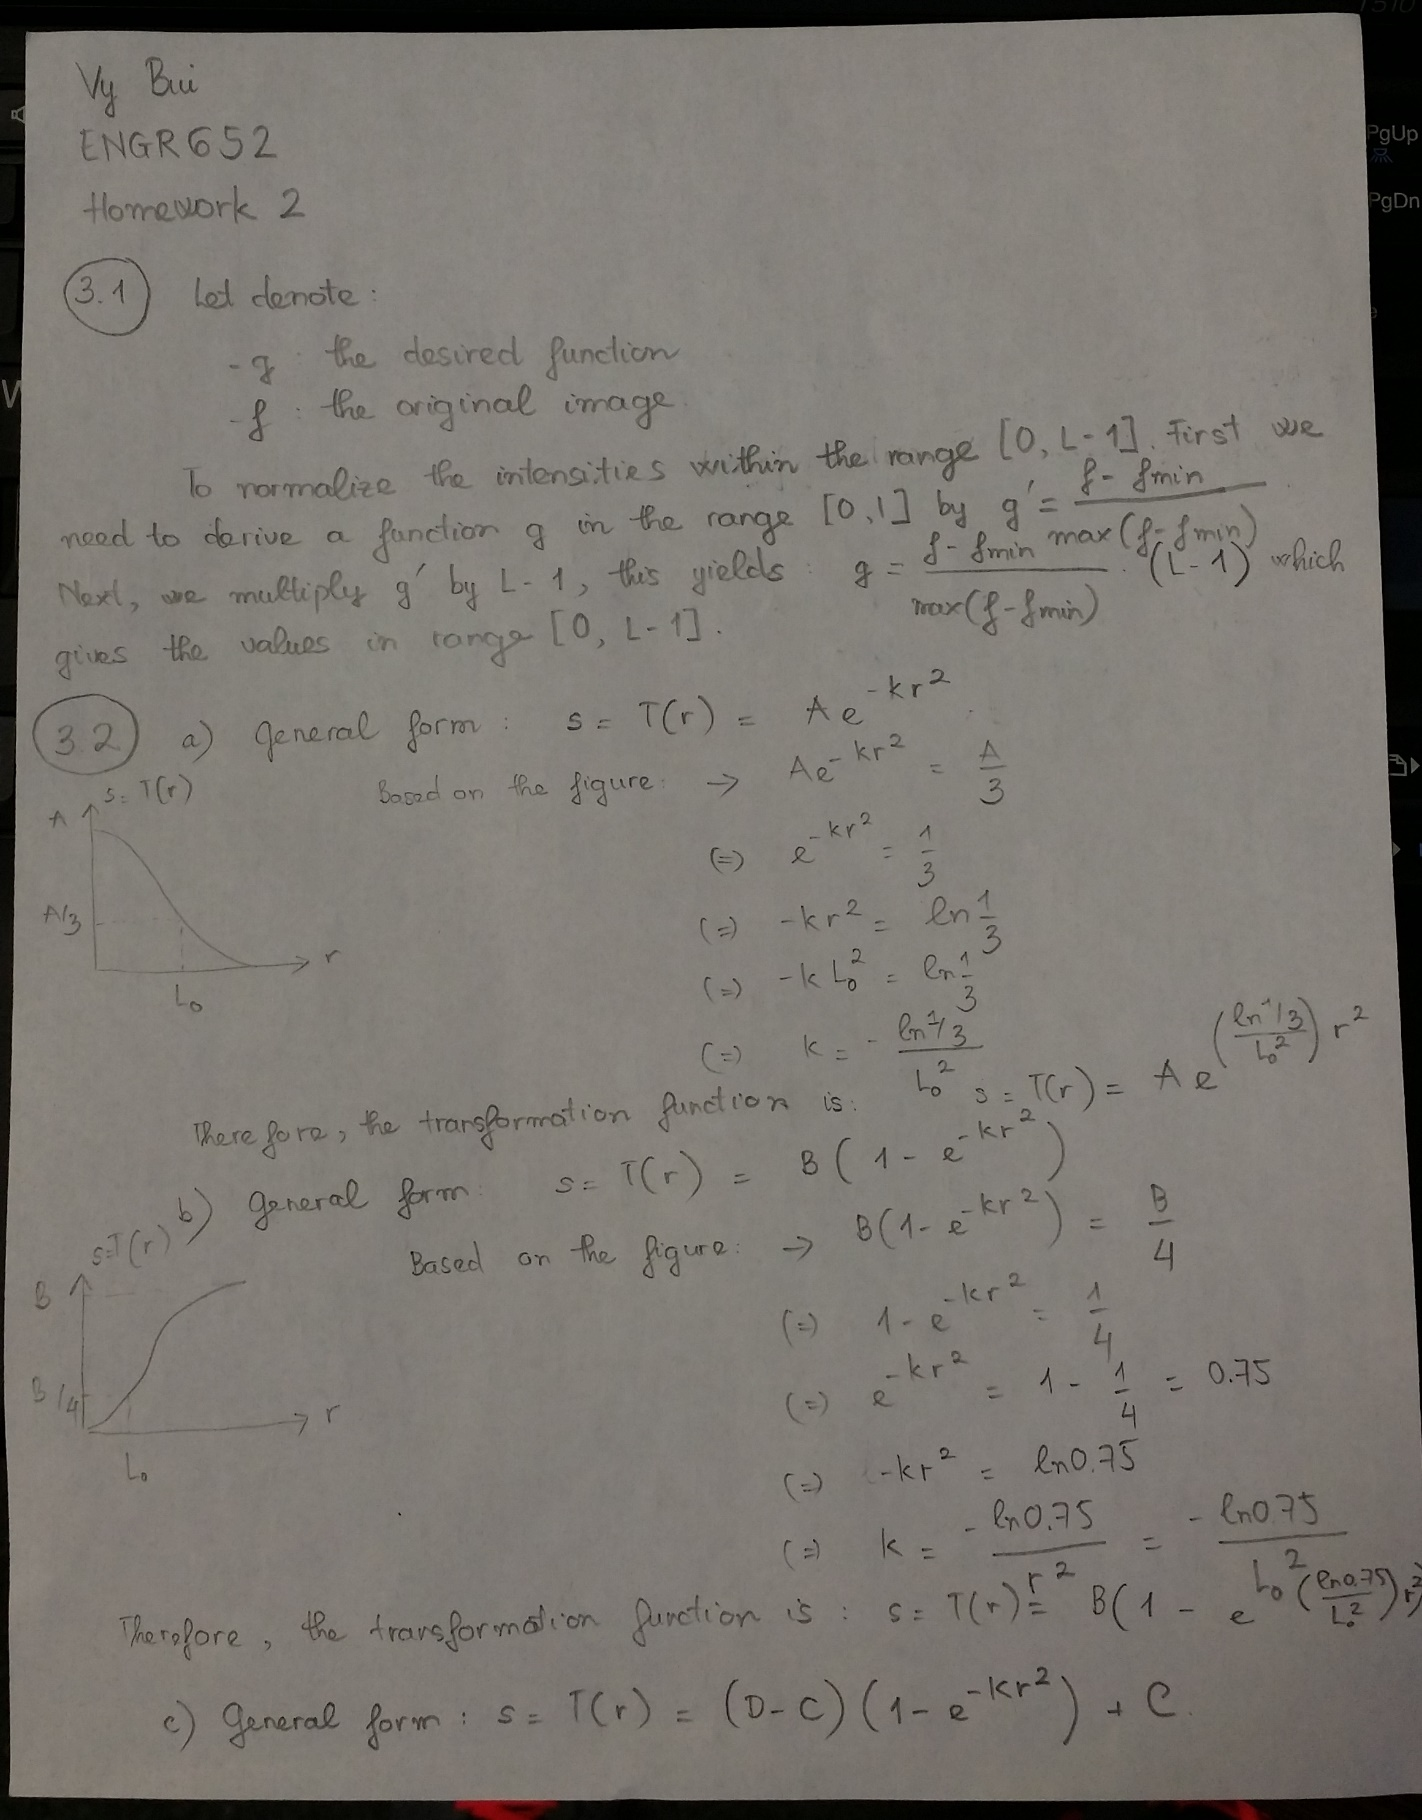 Vy Bui
ENGR652
Homework 2
3.1 Let denote :
- g : the desired function
- f : the original image.
To normalize the intensities within the range [0, L-1]. First we
need to derive a function g in the range [0,1] by g' = (f - fmin) / max(f - fmin)
Next, we multiply g' by L-1, this yields : g = (f - fmin) / max(f - fmin) . (L-1) which
gives the values in range [0, L-1].
3.2 a) General form : s = T(r) = Ae^(-kr²)
Based on the figure: → Ae^(-kr²) = A/3
(=) e^(-kr²) = 1/3
(=) -kr² = ln 1/3
(=) -kL₀² = ln 1/3
(=) k = - ln 1/3 / L₀²
s = T(r)
A
A/3
L₀
r
Therefore, the transformation function is: s = T(r) = Ae^((ln 1/3 / L₀²) r²)
b) General form: s = T(r) = B(1 - e^(-kr²))
Based on the figure: → B(1 - e^(-kr²)) = B/4
(=) 1 - e^(-kr²) = 1/4
(=) e^(-kr²) = 1 - 1/4 = 0.75
(=) -kr² = ln0.75
(=) k = - ln0.75 / r² = - ln0.75 / L₀²
s=T(r)
B
B/4
L₀
r
Therefore, the transformation function is : s = T(r) = B(1 - e^((ln0.75 / L₀²) r²)
c) General form : s = T(r) = (D-C)(1 - e^(-kr²)) + C.
PgUp
PgDn